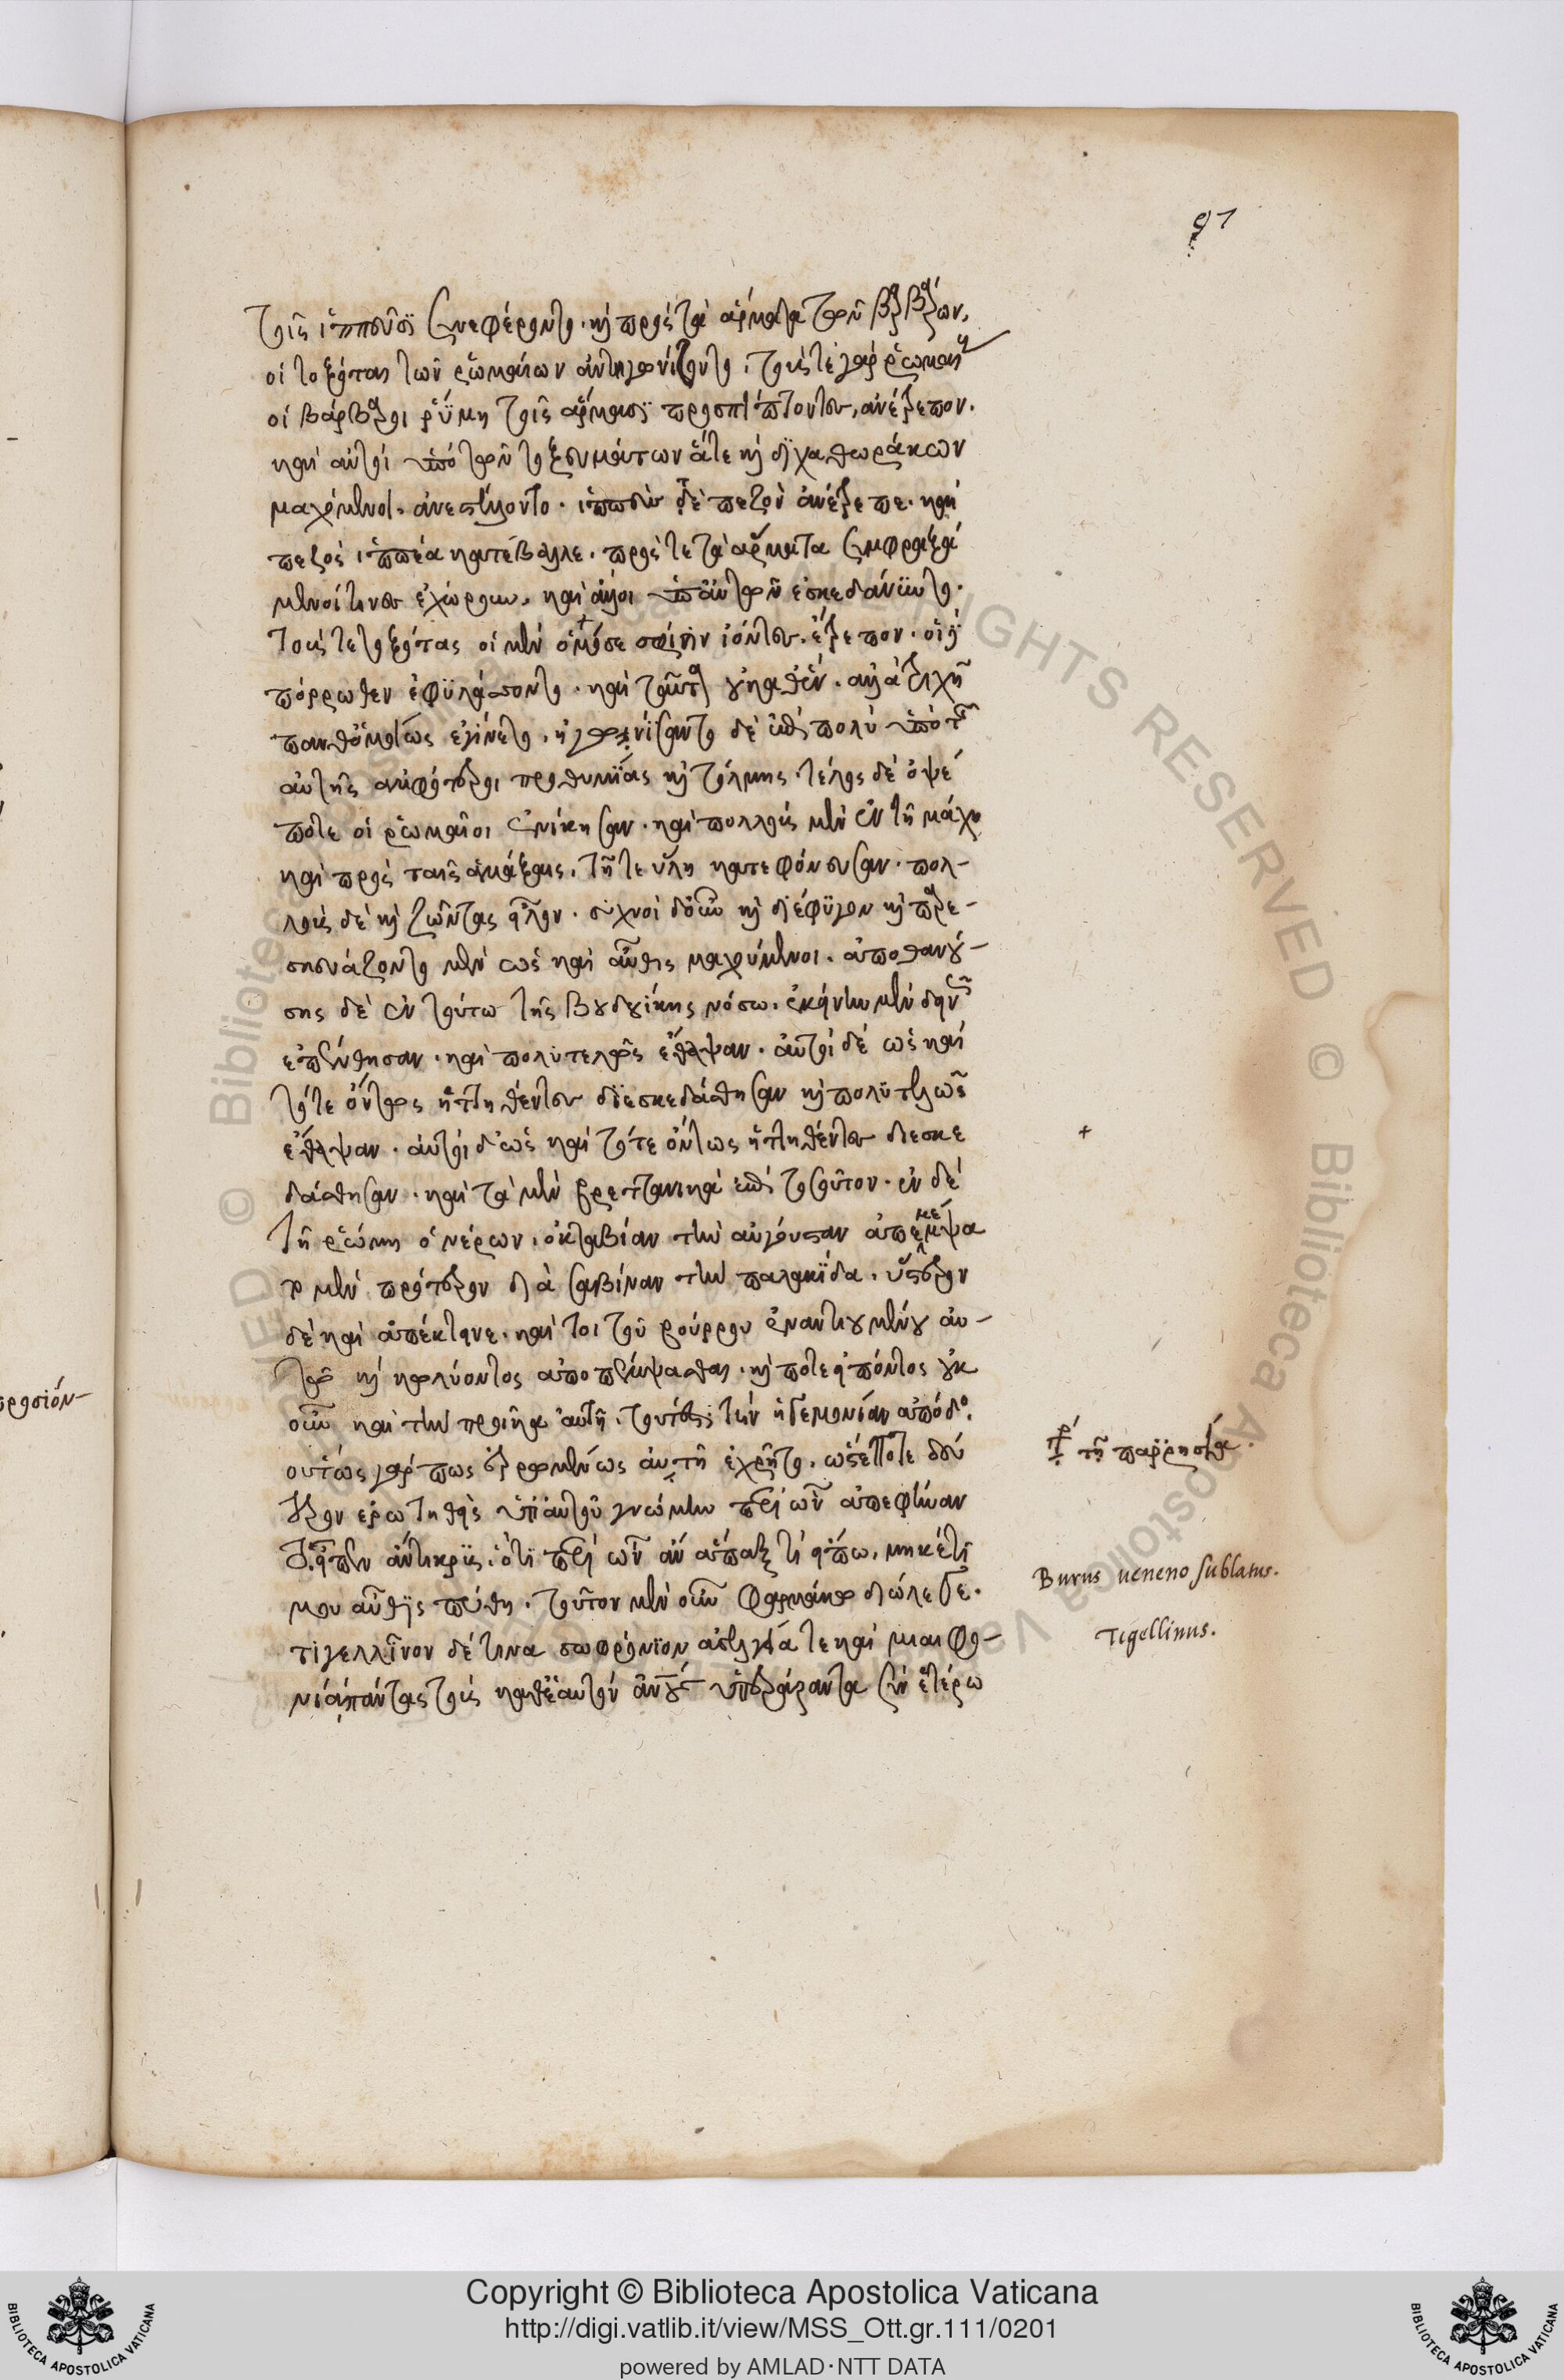 τοῖς ἱππεῦσι συνεφέροντο. καὶ πρὸς τὰ ἅρματα τῶν βαρβάρων,
οἱ τοξόται τῶν ῥωμαίων ἀντηγωνίζοντο. τούς τε γὰρ ῥωμαίους
οἱ βάρβαροι ῥύμη τοῖς ἅρμασι προσπίπτοντες, ἀνέτρεπον.
καὶ αὐτοὶ ὑπὸ τῶν τοξευμάτων ἅτε καὶ δίχα θωράκων
μαχόμενοι, ἀνεστέλλοντο. ἱππεὺς δὲ πεζὸν ἀνέτρεπε. καὶ
πεζὸς ἱππέα κατέβαλλε. πρός τε τὰ ἅρματα συμφραξά
μενοί τινες ἐχώρουν, καὶ ἄλλοι ὑπ' αὐτῶν ἐσκεδάννυντο.
τούς τε τοξότας οἱ μὲν ὁμόσε σφίσιν ἰόντες, ἔτρεπον. οἱ δὲ
πόρρωθεν ἐφυλάσσοντο. καὶ ταῦτα οὐ καθ' ἕν. ἀλλὰ τριχῆ
πανθ' ὁμοίως ἐγίνετο. ἠγωνίσαντο δὲ ἐπὶ πολὺ ὑπὸ τῆς
αὐτῆς ἀμφότεροι προθυμίας καὶ τόλμης. τέλος δὲ ὀψέ
ποτε οἱ ῥωμαῖοι ἐνίκησαν. καὶ πολλοὺς μὲν ἐν τῆ μάχη
καὶ πρὸς ταῖς ἁμάξαις, τῆ τε ὕλη κατεφόνευσαν. πολ-
λοὺς δὲ καὶ ζῶντας εἷλον. συχνοὶ δ' οὖν καὶ διέφυγον καὶ παρε-
σκευάζοντο μὲν ὡς καὶ αὖθις μαχούμενοι. ἀποθανού-
σης δὲ ἐν τούτω τῆς βουδουίκης νόσω. ἐκείνην μὲν δεινῶς
ἐπένθησαν. καὶ πολυτελῶς ἔθαψαν. αὐτοὶ δὲ ὡς καὶ
τότε ὄντως ἡττηθέντες διεσκεδάσθησαν καὶ πολυτελῶς
ἔθαψαν. αὐτοὶ δ' ὡς καὶ τότε ὄντως ἡττηθέντες διεσκε
δάσθησαν. καὶ τὰ μὲν βρεττανικὰ ἐπὶ τοσοῦτον. ἐν δὲ
τῆ ῥώμη ὁ νέρων, ὀκταβίαν τὴν αὐγούσταν ἀπεπέμψα
το μὲν πρότερον διὰ σαβίναν τὴν παλλακίδα. ὕστερον
δὲ καὶ ἀπέκτεινε. καί τοι τοῦ βούρρου ἐναντιουμένου αὐ-
τῶ καὶ κωλύοντος ἀποπέμψασθαι. καί ποτε εἰπόντος οὐκ
οὖν καὶ τὴν προῖκα αὐτῆ. τουτέστι τὴν ἡγεμονίαν ἀπόδος.
οὕτως γάρ πως ἐρρωμένως αὐτῆ ἐχρῆτο. ὥστέ ποτε δεύ
τερον ἐρωτηθεὶς ὑπ' αὐτοῦ γνώμην περὶ ὧν ἀπεφήναν
το. εἰπεῖν ἄντικρυς. ὅτι περὶ ὧν ἂν ἅπαξ τι εἴπω, μηκέτι
μου αὖθις πύθη. τοῦτον μὲν οὖν φαρμάκω διώλεσε.
τιγελλῖνον δέ τινα σωφρόνιον ἀσελγεία τε καὶ μιαιφο-
νία πάντας τοὺς καθ' ἑαυτὸν ἀνθρώπους ὑπεράραντα σὺν ἑτέρω
τῆ παρρησία.
Burus ueneno sublatus.
Tigellinus.
Copyright © Biblioteca Apostolica Vaticana
http://digi.vatlib.it/view/MSS_Ott.gr.111/0201
powered by AMLAD·NTT DATA